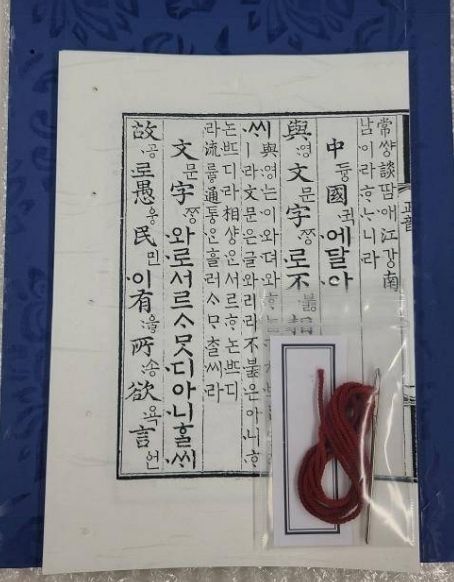 正音
常썅談땀애江강南
남이라ᄒᆞᄂᆞ니라
中듀ᇰ國귁에달아
與영文문字ᄍᆞᆼ로不부ᇙ相
ᄊᆡ與영는이와뎌와ᄒᆞ
ㅣ라文문은글와리라不부ᇙ은아니ᄒᆞ
논ᄠᅳ디라相샤ᇰᄋᆞᆫ서르ᄒᆞ논ᄠᅳ디
라流류ᇢ通토ᇰᄋᆞᆫ흘러ᄉᆞᄆᆞᄎᆞᆯ씨라
文문字ᄍᆞᆼ와로서르ᄉᆞᄆᆞᆺ디아니ᄒᆞᆯᄊᆡ
故공로愚웅民민이有우ᇢ所송欲욕言언